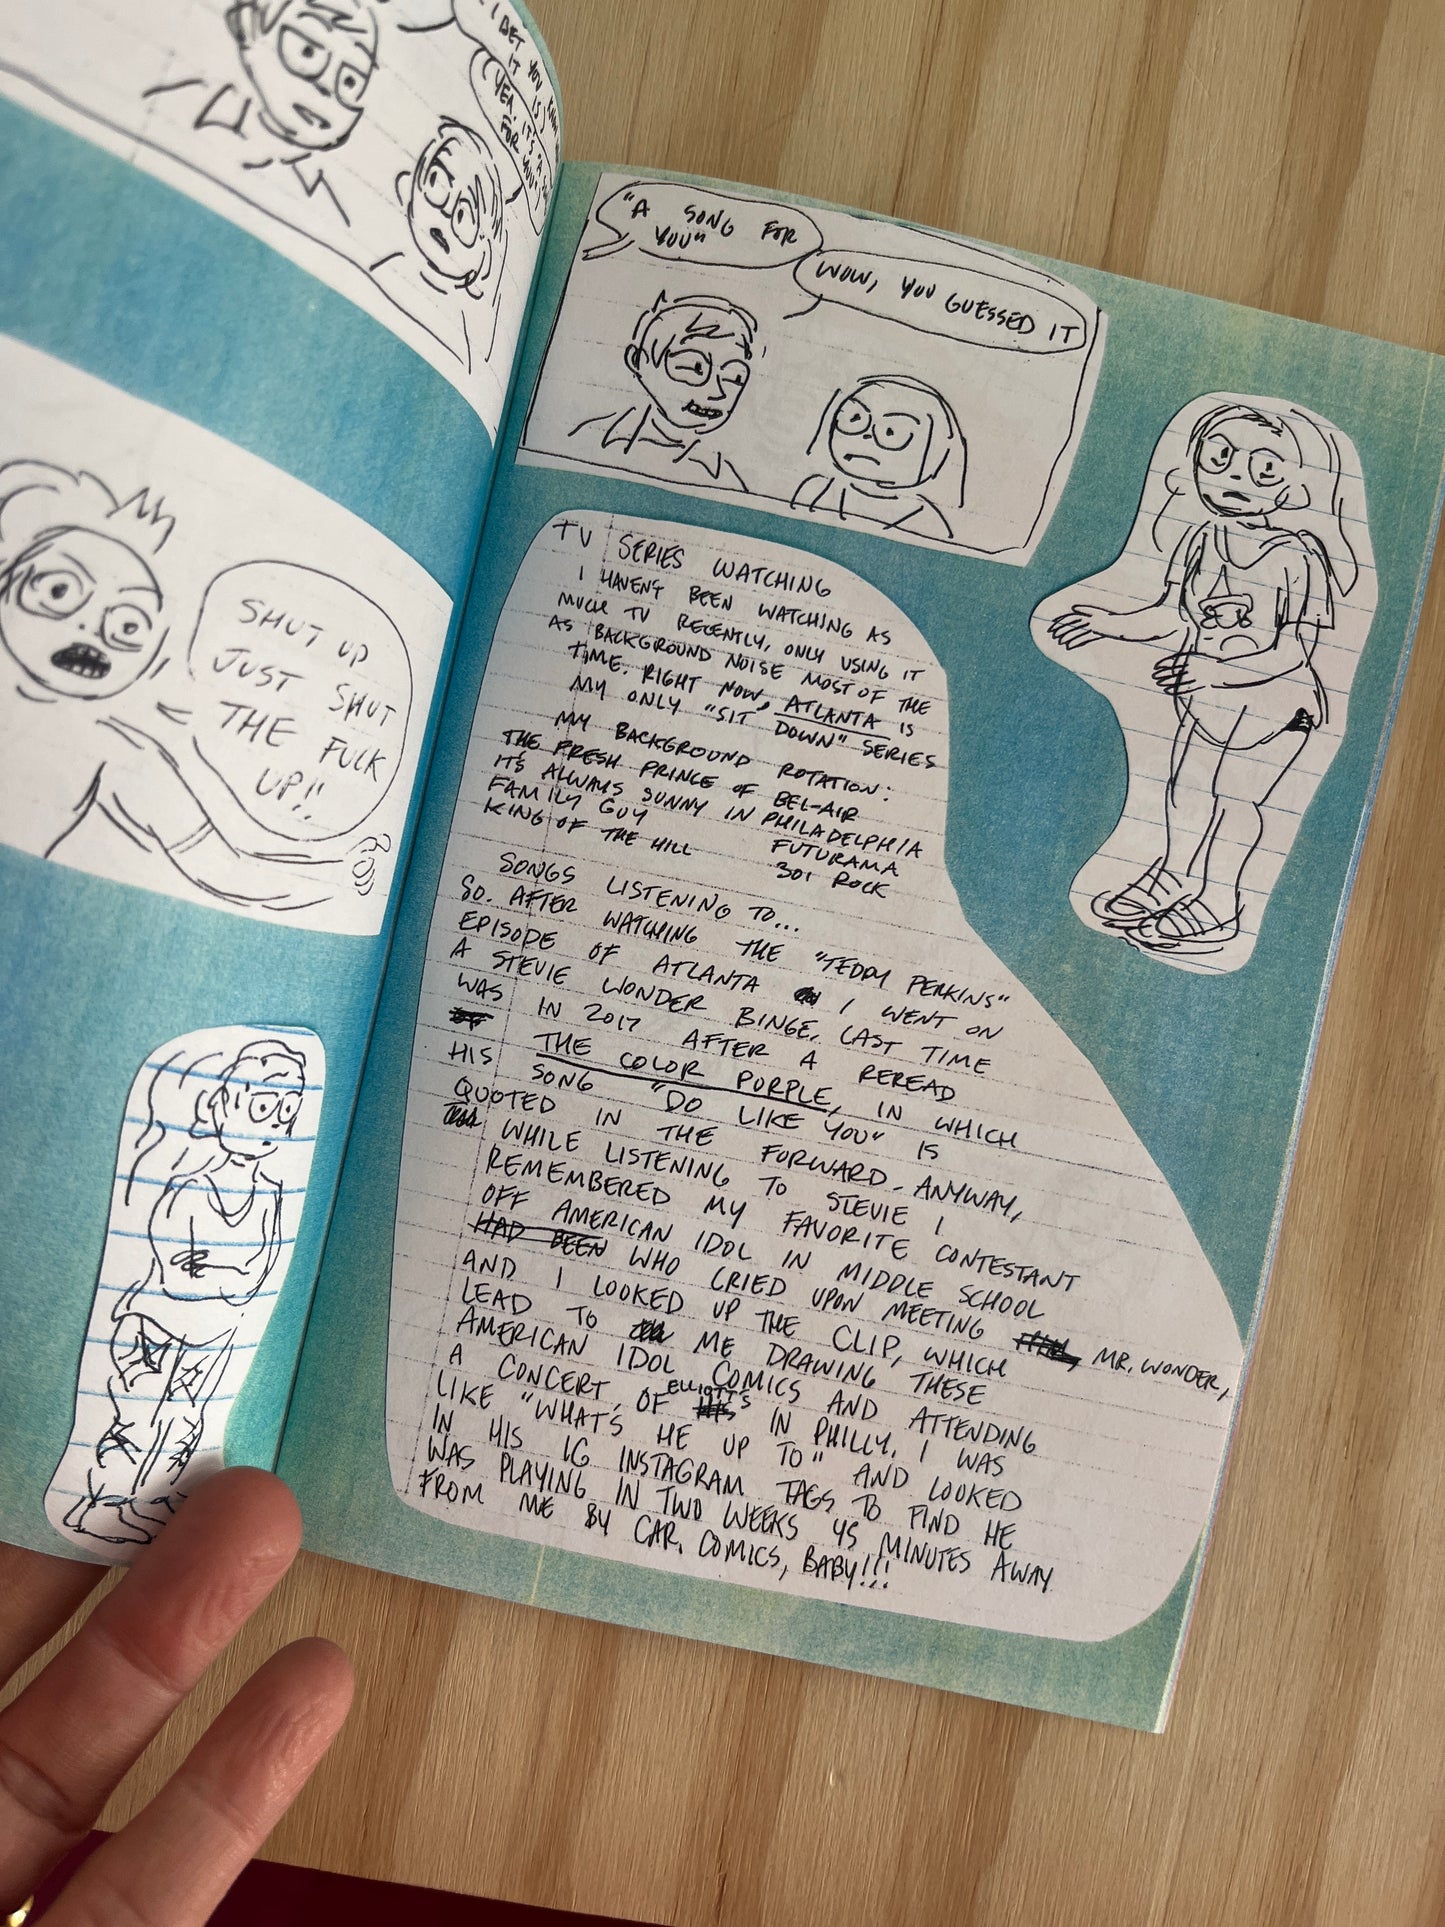 I BET YOU KNOW
IT IS)
YEA. IT'S "A
FOR YOU"
SHUT UP
JUST SHUT
THE FUCK
UP!!
"A SONG FOR
YOU"
WOW, YOU GUESSED IT
TV SERIES WATCHING
I HAVEN'T BEEN WATCHING AS
MUCH TV RECENTLY, ONLY USING IT
AS BACKGROUND NOISE MOST OF THE
TIME. RIGHT NOW, ATLANTA IS
MY ONLY "SIT DOWN" SERIES
MY BACKGROUND ROTATION:
THE FRESH PRINCE OF BEL-AIR
IT'S ALWAYS SUNNY IN PHILADELPHIA
FAMILY GUY FUTURAMA
KING OF THE HILL 301 ROCK
SONGS LISTENING TO...
SO. AFTER WATCHING THE "TEDDY PERKINS"
EPISODE OF ATLANTA I WENT ON
A STEVIE WONDER BINGE. LAST TIME
WAS IN 2017 AFTER A REREAD
THE COLOR PURPLE, IN WHICH
HIS SONG "DO LIKE YOU" IS
QUOTED IN THE FORWARD. ANYWAY,
WHILE LISTENING TO STEVIE I
REMEMBERED MY FAVORITE CONTESTANT
OFF AMERICAN IDOL IN MIDDLE SCHOOL
HAD BEEN WHO CRIED UPON MEETING MR. WONDER,
AND I LOOKED UP THE CLIP, WHICH
LEAD TO ME DRAWING THESE
AMERICAN IDOL COMICS AND ATTENDING
A CONCERT OF ELLIOTT'S IN PHILLY. I WAS
LIKE "WHAT'S HE UP TO" AND LOOKED
IN HIS IG INSTAGRAM TAGS TO FIND HE
WAS PLAYING IN TWO WEEKS 45 MINUTES AWAY
FROM ME BY CAR. COMICS, BABY!!!